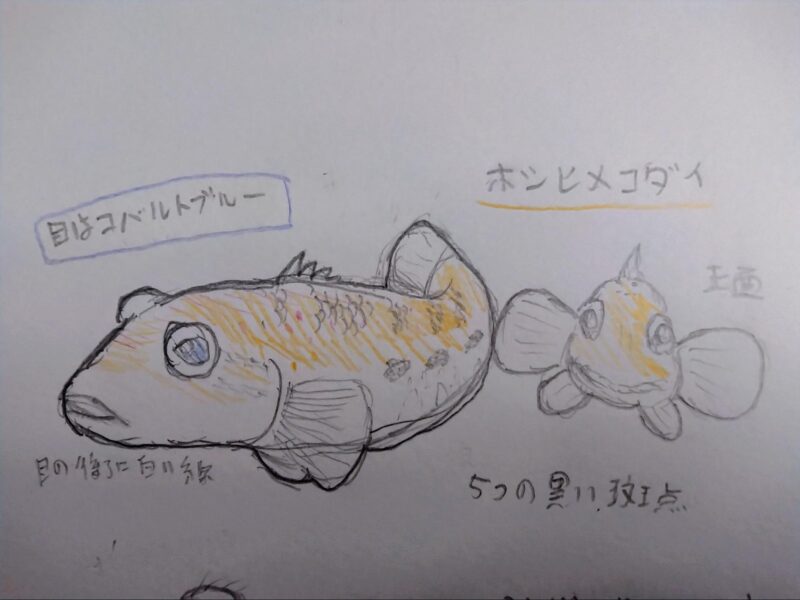 ホシヒメコダイ
目はコバルトブルー
正面
目の後ろに白い線
5つの黒い斑点